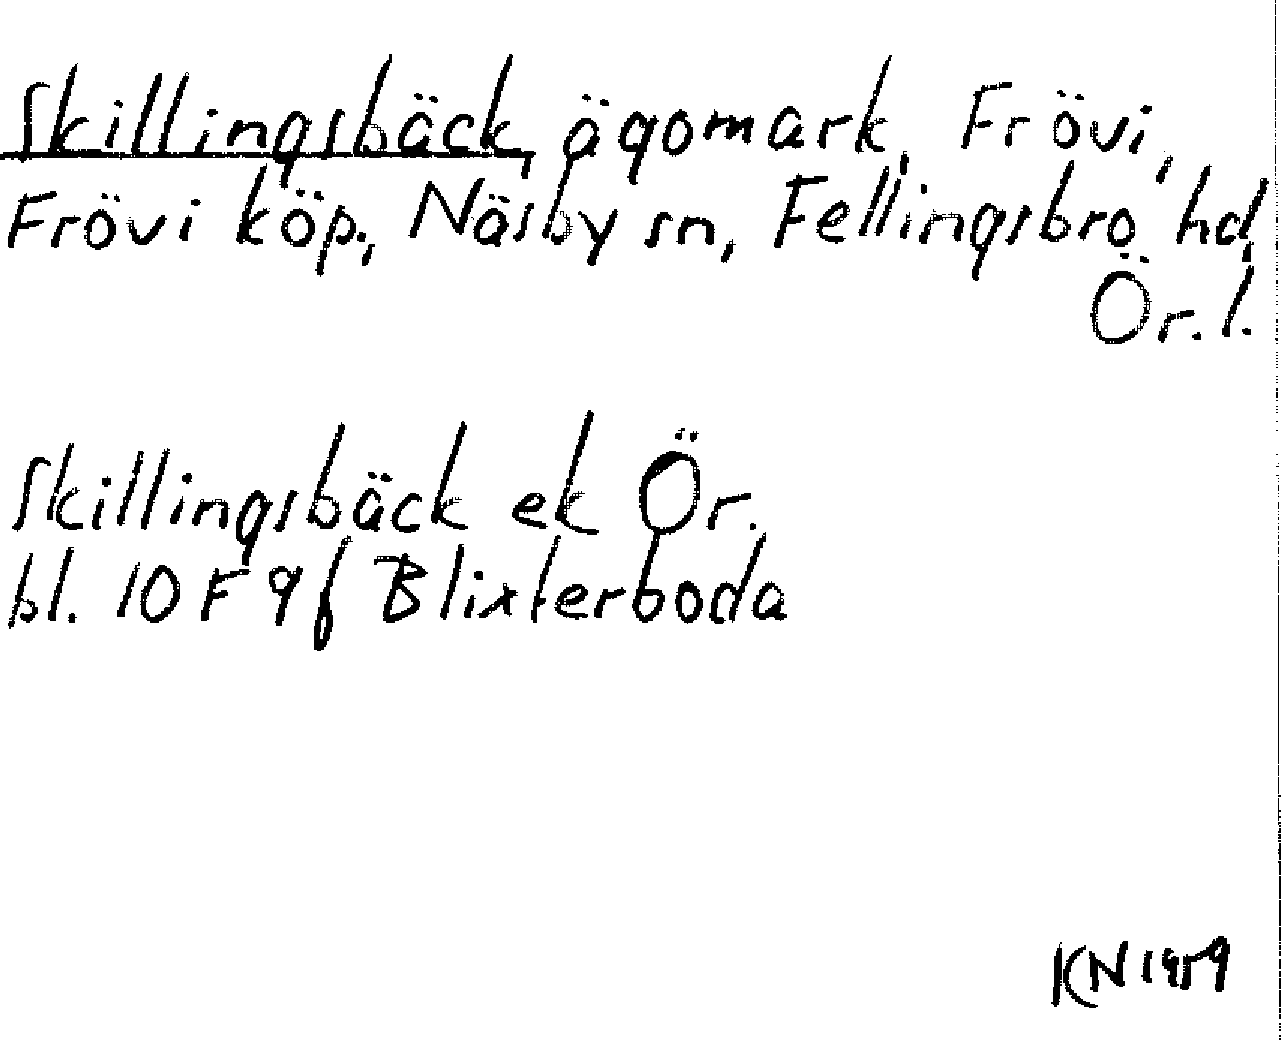 Skillingsbäck, ägomark, Frövi,
Frövi köp., Näsby sn, Fellingsbro hd,
Ör. l.
Skillingsbäck ek Ör.
bl. 10 F 9 f Blixterboda
KN 1959